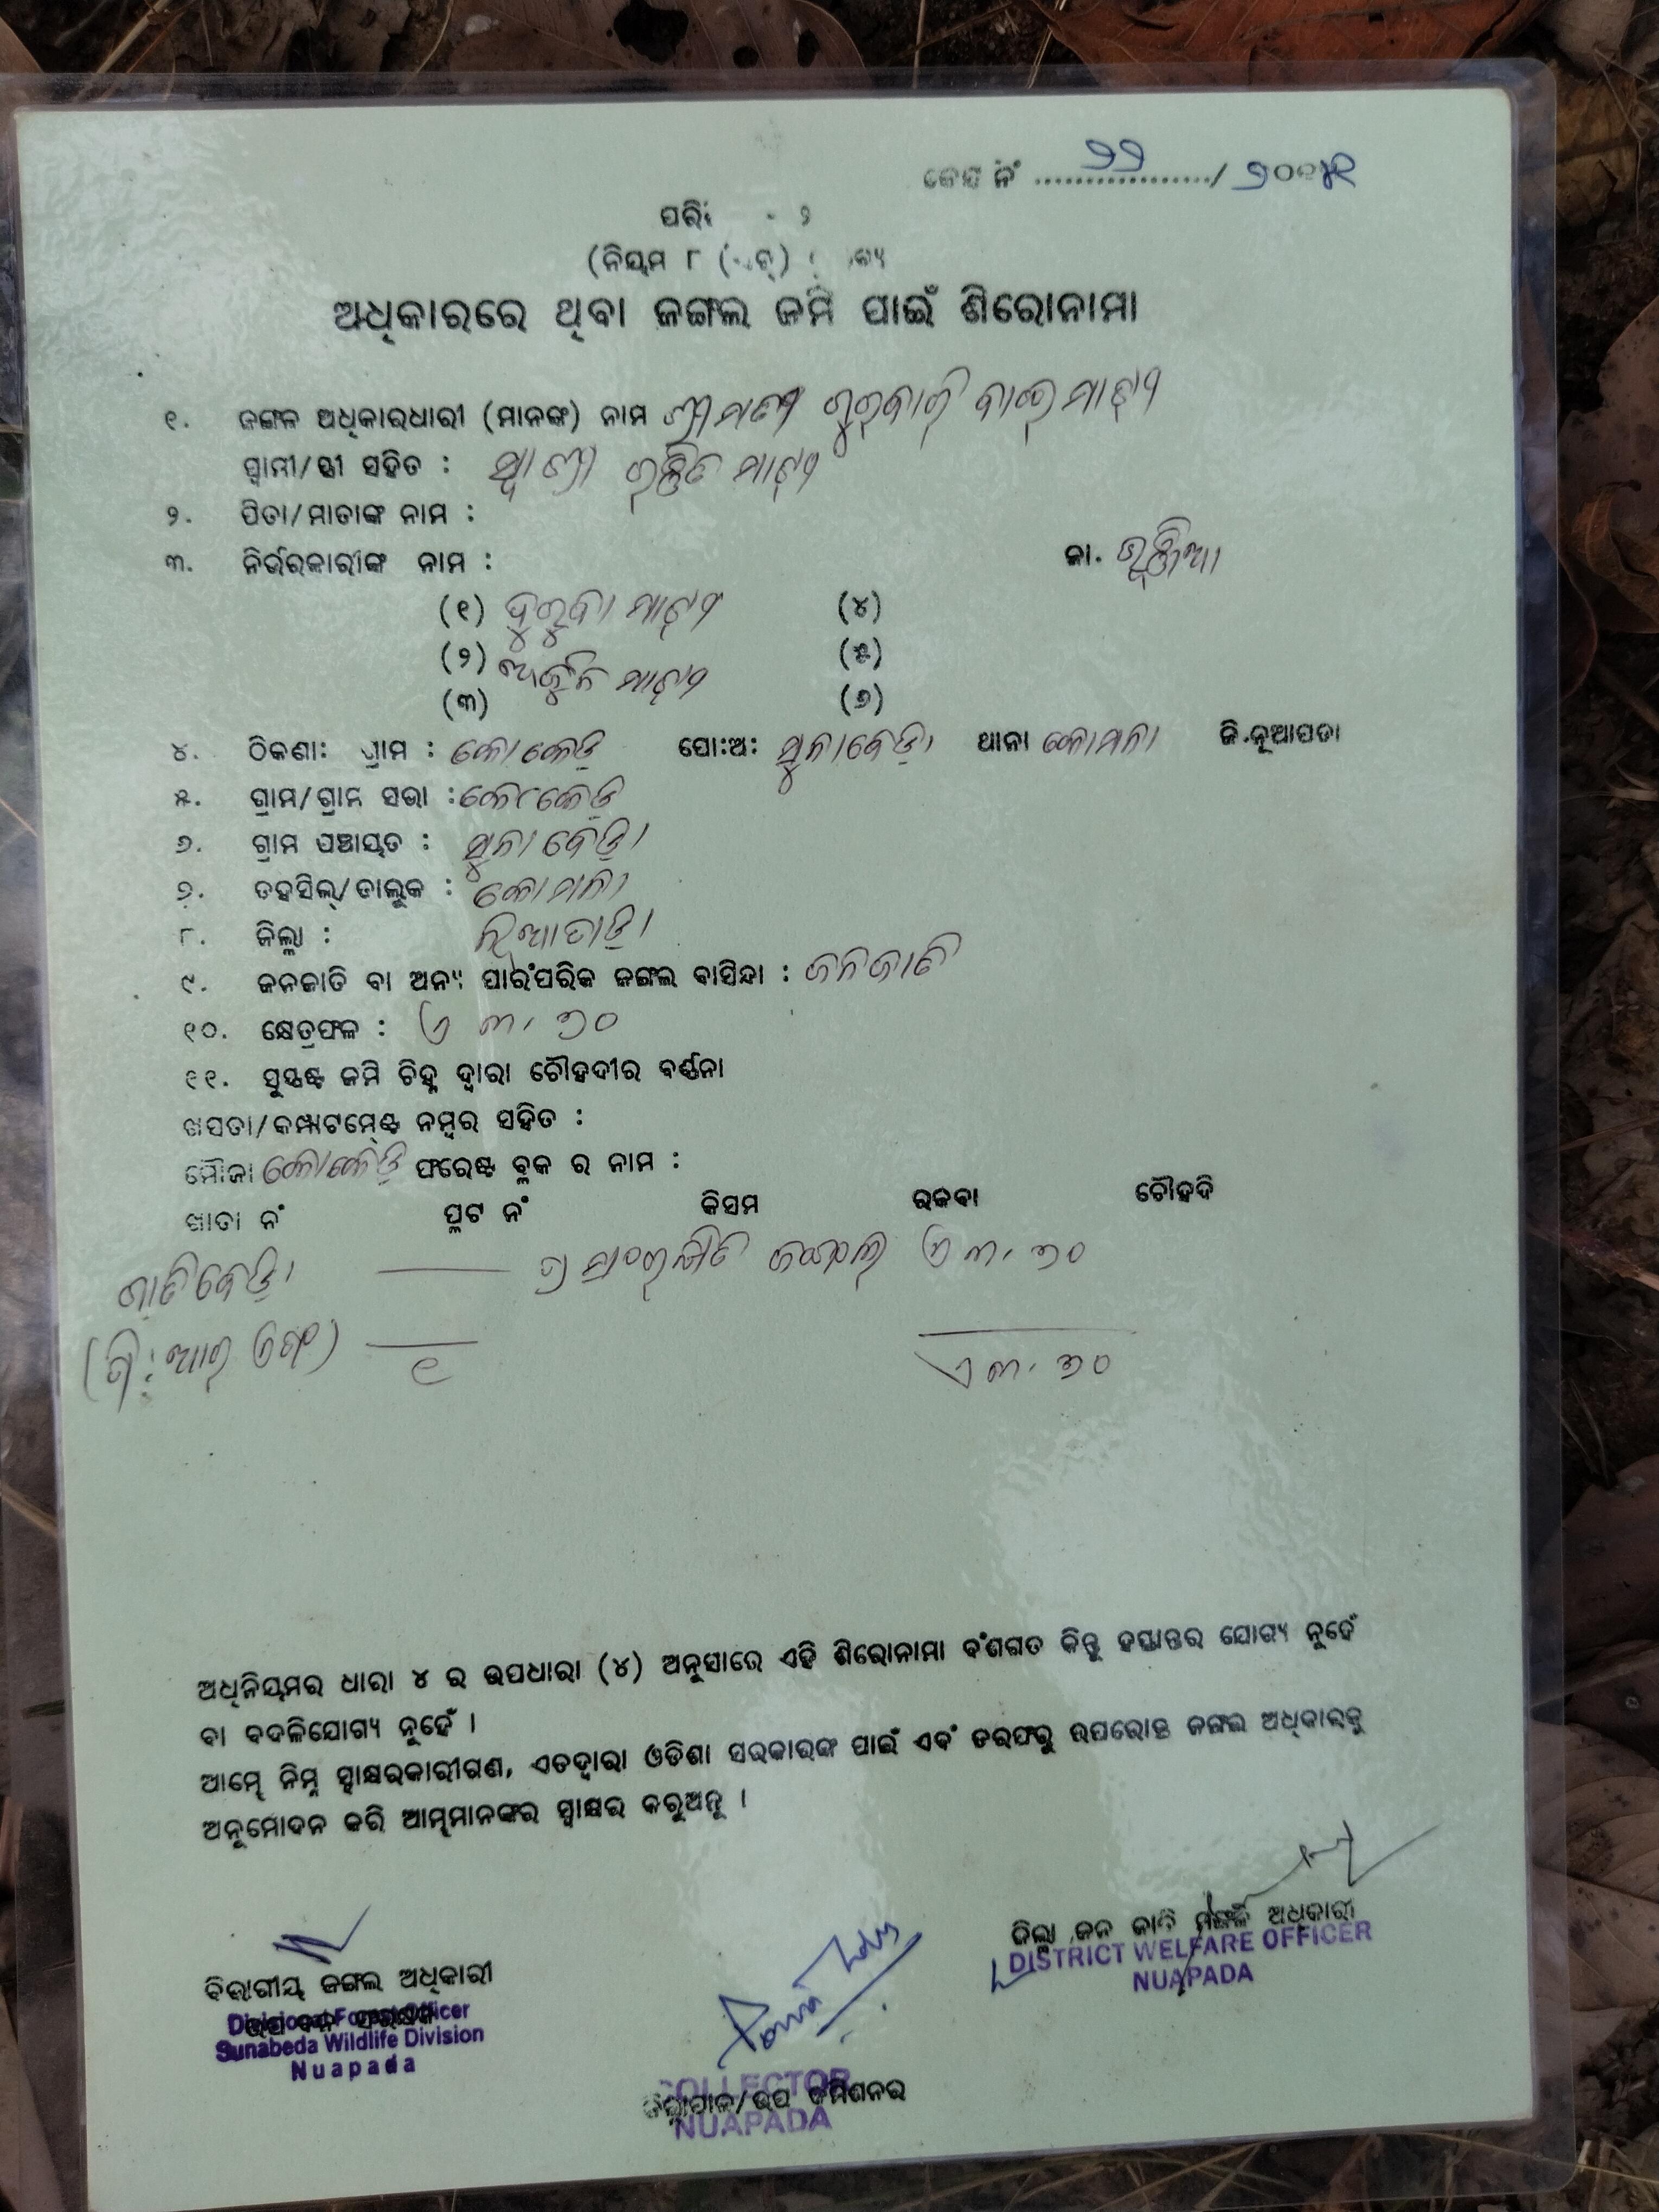 କେସ ନଂ ................../ ୨୨ ୨୦
ପରି - ୨
(ନିୟମ ୮
ଅଧିକାରରେ ଥିବା ଜଙ୍ଗଲ ଜମି ପାଇଁ ଶିରୋନାମା
୧. ଜଙ୍ଗଳ ଅଧିକାରଧାରୀ (ମାନଙ୍କ) ନାମ ଶ୍ରୀମତୀ ମାଝୀ
ସ୍ୱାମୀ/ସ୍ତ୍ରୀ ସହିତ : ସ୍ୱାମୀ ମାଝୀ
୨. ପିତା/ମାତାଙ୍କ ନାମ :
୩. ନିର୍ଭରକାରୀଙ୍କ ନାମ : ଜା. ଭୁଞ୍ଜିଆ
(୧) ମାଝୀ (୪)
(୨) ଅର୍ଜୁନ ମାଝୀ (୫)
(୩) (୬)
୪. ଠିକଣା: ଗ୍ରାମ : କୋକେଡ଼ି ପୋ:ଅ: ସୁନାବେଡ଼ା ଥାନା କୋମନା ଜି.ନୂଆପଡା
୫. ଗ୍ରାମ/ଗ୍ରାମ ସଭା : କୋକେଡ଼ି
୬. ଗ୍ରାମ ପଞ୍ଚାୟତ : ସୁନାବେଡ଼ା
୭. ତହସିଲ୍/ତାଲୁକ : କୋମନା
୮. ଜିଲ୍ଲା : ନୂଆପାଡ଼ା
୯. ଜନଜାତି ବା ଅନ୍ୟ ପାରଂପରିକ ଜଙ୍ଗଲ ବାସିନ୍ଦା : ଜନଜାତି
୧୦. କ୍ଷେତ୍ରଫଳ : ଏ ୩.୭୦
୧୧. ସୁସ୍ପଷ୍ଟ ଜମି ଚିହ୍ନ ଦ୍ୱାରା ଚୌହଦୀର ବର୍ଣ୍ଣନା
ଖସଡା/କମ୍ପାଟମେଣ୍ଟ ନମ୍ବର ସହିତ :
ମୌଜା କୋକେଡ଼ି ଫରେଷ୍ଟ ବ୍ଳକ ର ନାମ :
ଖାତା ନଂ ପ୍ଳଟ ନଂ କିସମ ରକବା ଚୌହଦି
ଜଙ୍ଗଲ ଏ ୩.୭୦
୧ ଏ ୩.୭୦
ଅଧିନିୟମର ଧାରା ୪ ର ଉପଧାରା (୪) ଅନୁସାରେ ଏହି ଶିରୋନାମା ବଂଶଗତ କିନ୍ତୁ ହସ୍ତାନ୍ତର ଯୋଗ୍ୟ ନୁହେଁ
ବା ବଦଳିଯୋଗ୍ୟ ନୁହେଁ ।
ଆମ୍ଭେ ନିମ୍ନ ସ୍ୱାକ୍ଷରକାରୀଗଣ, ଏତଦ୍ୱାରା ଓଡିଶା ସରକାରଙ୍କ ପାଇଁ ଏବଂ ତରଫରୁ ଉପରୋକ୍ତ ଜଙ୍ଗଲ ଅଧିକାରକୁ
ଅନୁମୋଦନ କରି ଆମ୍ଭମାନଙ୍କର ସ୍ୱାକ୍ଷର କରୁଅଛୁ ।
ଜିଲ୍ଲା ଜନ ଜାତି ମଙ୍ଗଳ ଅଧିକାରୀ
DISTRICT WELFARE OFFICER
NUAPADA
ବିଭାଗୀୟ ଜଙ୍ଗଲ ଅଧିକାରୀ
Divisional Forest Officer
Sunabeda Wildlife Division
Nuapada
COLLECTOR
ଜିଲ୍ଲାପାଳ/ଉପ କମିଶନର
NUAPADA